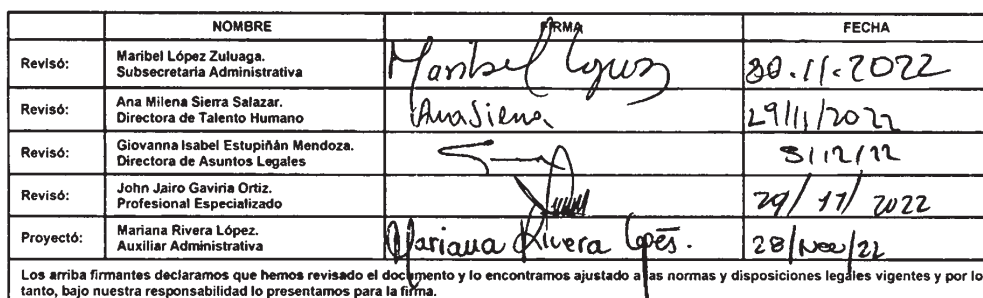 NOMBRE FIRMA FECHA
Revisó: Maribel López Zuluaga.
Subsecretaria Administrativa
Maribel López 30.11.2022
Revisó: Ana Milena Sierra Salazar.
Directora de Talento Humano
Ana Sierra 29/11/2022
Revisó: Giovanna Isabel Estupiñán Mendoza.
Directora de Asuntos Legales
5/12/22
Revisó: John Jairo Gaviria Ortiz.
Profesional Especializado
29/11/2022
Proyectó: Mariana Rivera López.
Auxiliar Administrativa
Mariana Rivera López. 28/Nov/22
Los arriba firmantes declaramos que hemos revisado el documento y lo encontramos ajustado a las normas y disposiciones legales vigentes y por lo
tanto, bajo nuestra responsabilidad lo presentamos para la firma.